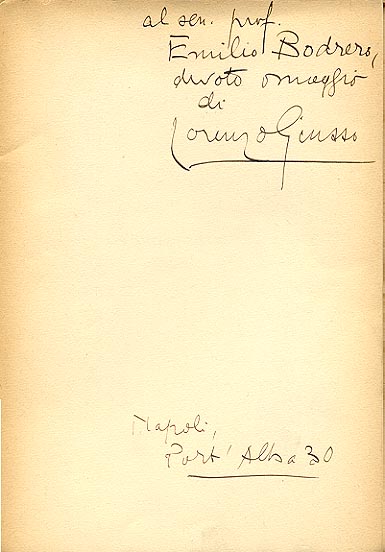 al sen. prof.
Emilio Bodrero,
devoto omaggio
di
Lorenzo Giusso
Napoli,
Port' Alba 30